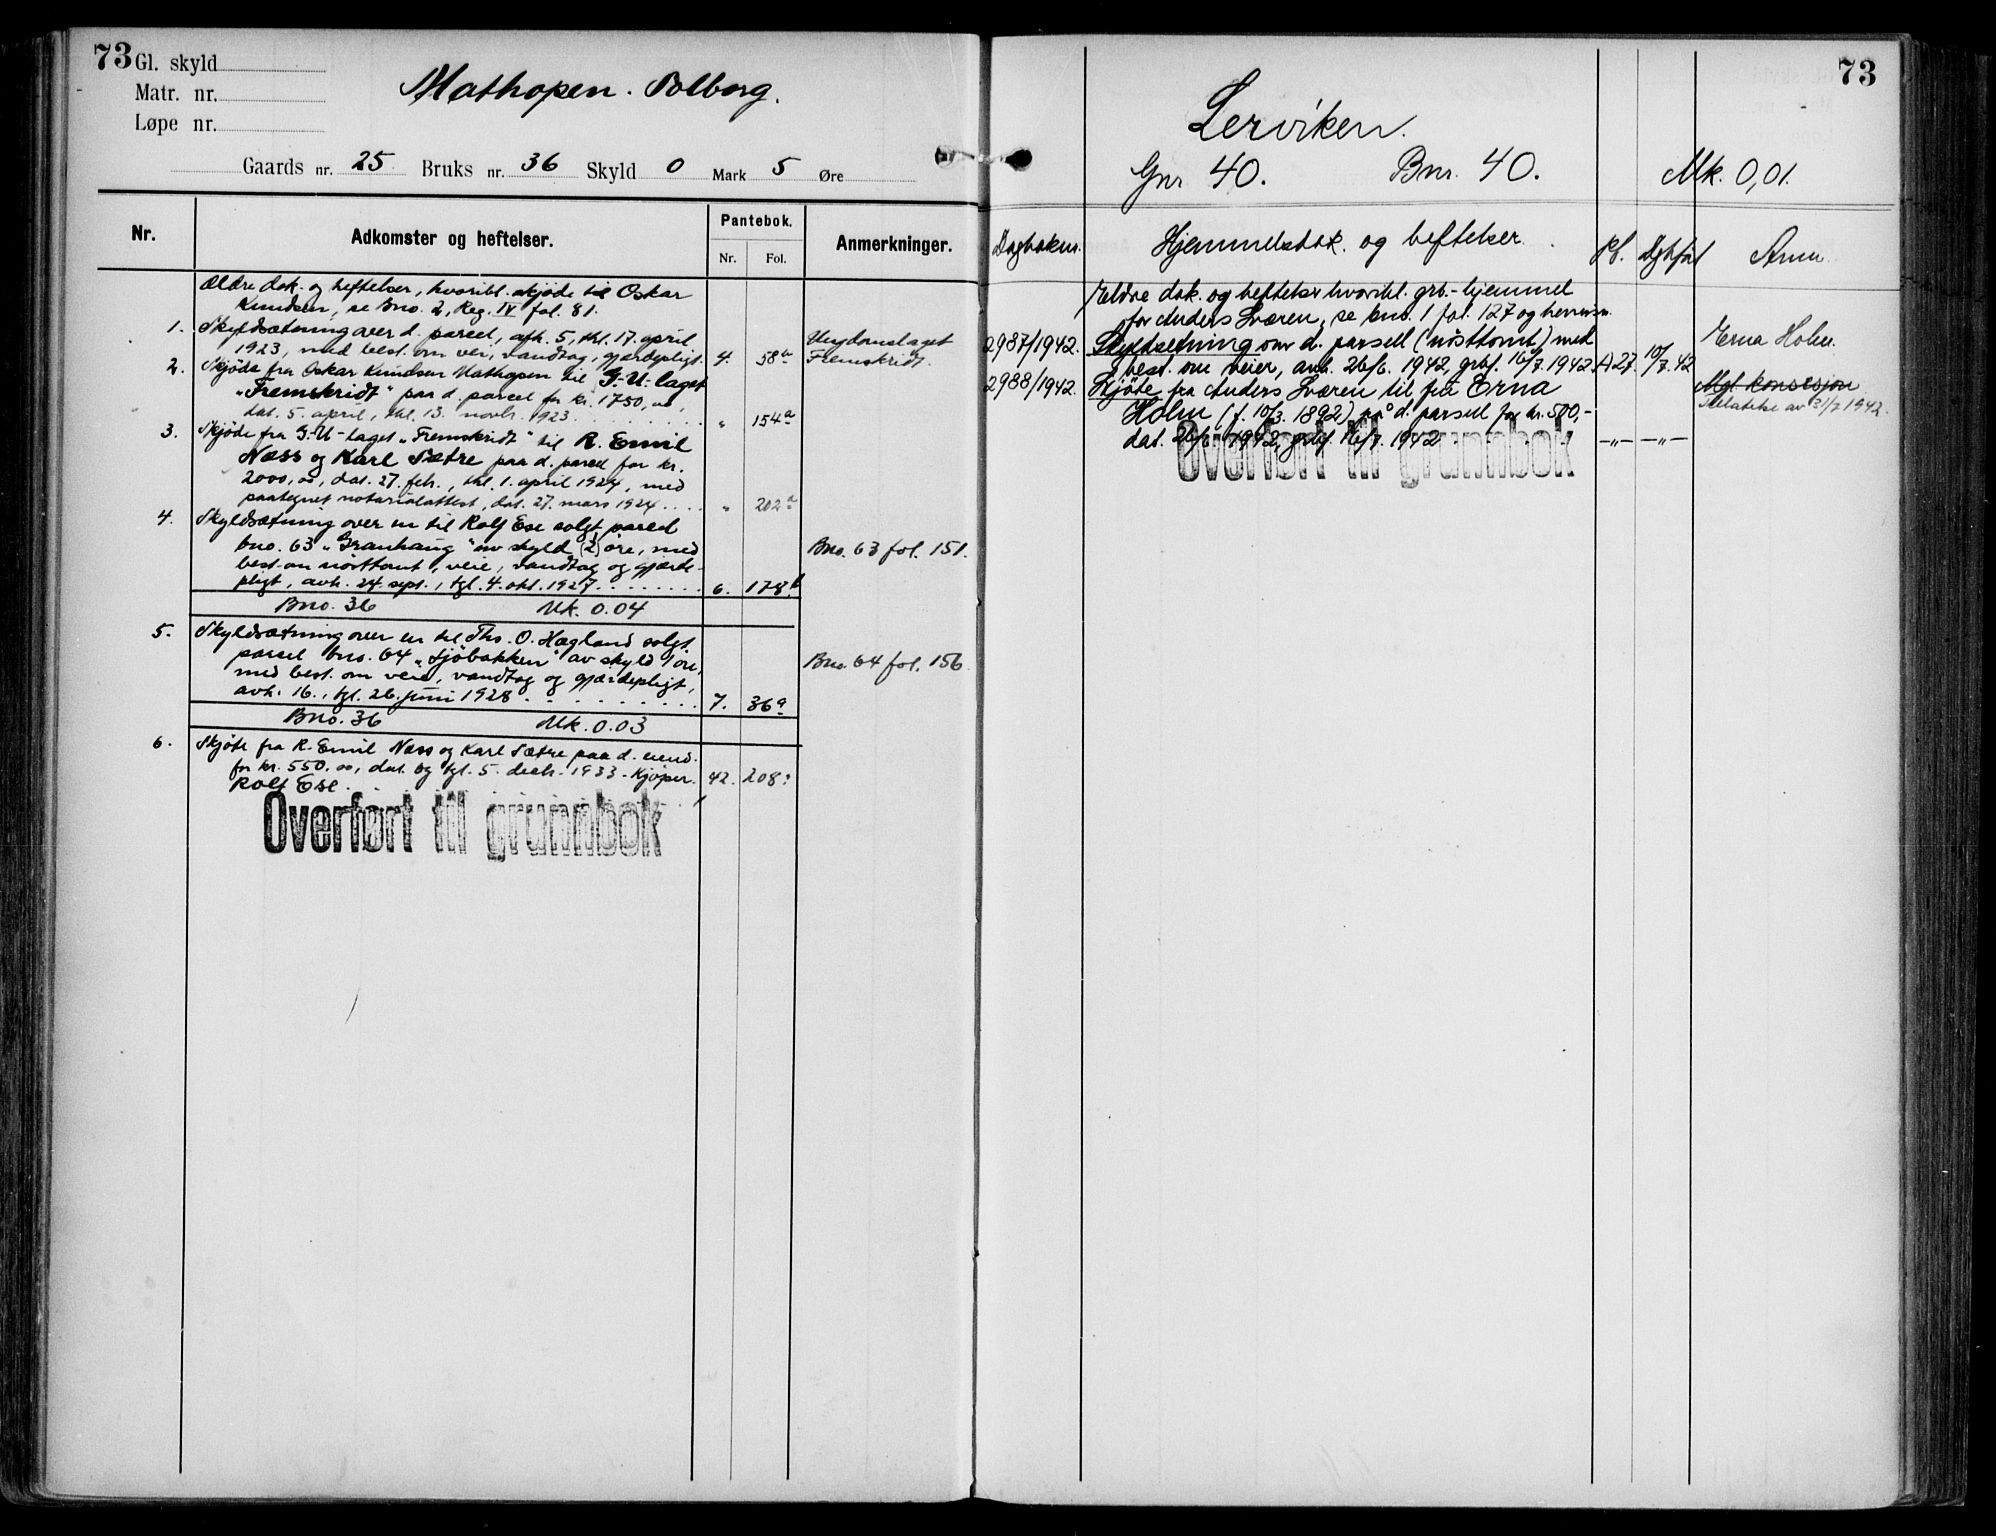 73
Gl. skyld
Matr. nr.
Løpe nr.
Mathopen. Solborg.
Gaards nr. 25 Bruks nr. 36 Skyld 0 Mark 5 Øre
Nr. Adkomster og heftelser. Pantebok. Anmerkninger.
Nr. Fol.
Ældre dok. og heftelser, hvoribl. skjøde til Oskar
Knudsen, se Bno. 2, Reg. IV fol. 81.
1. Skyldsætning over d. parcel, afh. 5, thl. 17. april
1923, med best. om vei, vandtag, gjærdepligt. 4. 58
Ungdomslaget
Fremskridt.
2. Skjøde fra Oskar Knudsen Mathopen til G-U-laget
"Fremskridt" paa d. parcel for kr. 1750,00,
dat. 5. april, thl. 13. novbr. 1923. " 154a
3. Skjøde fra G-U-laget "Fremskridt" til R. Emil
Næss og Karl Sætre paa d. parcel for kr.
2000,00, dat. 27. feb., thl. 1. april 1924, med
paategnet notarialattest, dat. 27. mars 1924 " 202a
4. Skyldsætning over en til Rolf Ese solgt parcel
bno. 63 "Granhaug" av skyld (1/2) øre, med
best. om nösttomt, veie, vandtag og gjærde-
pligt, avh. 24. sept., tgl. 4. okt. 1927. 6. 178b
Bno. 63 fol. 151.
Bno. 36 Mk. 0.04
5. Skyldsætning over en til Ths. O. Hagland solgt
parsel bno. 64 "Sjöbakken" av skyld 1 øre,
med best. om veie, vandtag og gjærdepligt,
avh. 16., tgl. 26. juni 1928. 7. 36a
Bno. 64 fol. 156
Bno. 36 Mk. 0.03
6. Skjøte fra R. Emil Næss og Karl Sætre paa d. eiend.
for kr. 550.00, dat. og tgl. 5. decb. 1933. Kjøper 42. 208
Rolf Ese.
Overført til grunnbok
73
Lerviken.
Gnr 40. Bnr. 40. Mk. 0,01.
Dagboknr. Hjemmelsdok. og heftelser. Pb. Dgbf. Anm.
Eldre dok. og heftelser hvoribl. grb.-hjemmel
for Anders Sværen, se bno. 1 fol. 127 og henvisn.
2987/1942. Skyldsetning over d. parsell (nösttomt) med
best. om veier, avh. 26/6. 1942, grbf. 16/7. 1942. A 27. 10/7. 42
Erna Holm.
2988/1942. Skjöte fra Anders Sværen til fru Erna
Holm (f. 10/3. 1892) på d. parsell for kr. 500,-
dat. 26/6. 1942, grbf. 16/7. 1942 -"- -"-
Mgl konsesjon
av 31/7 1942.
Overført til grunnbok